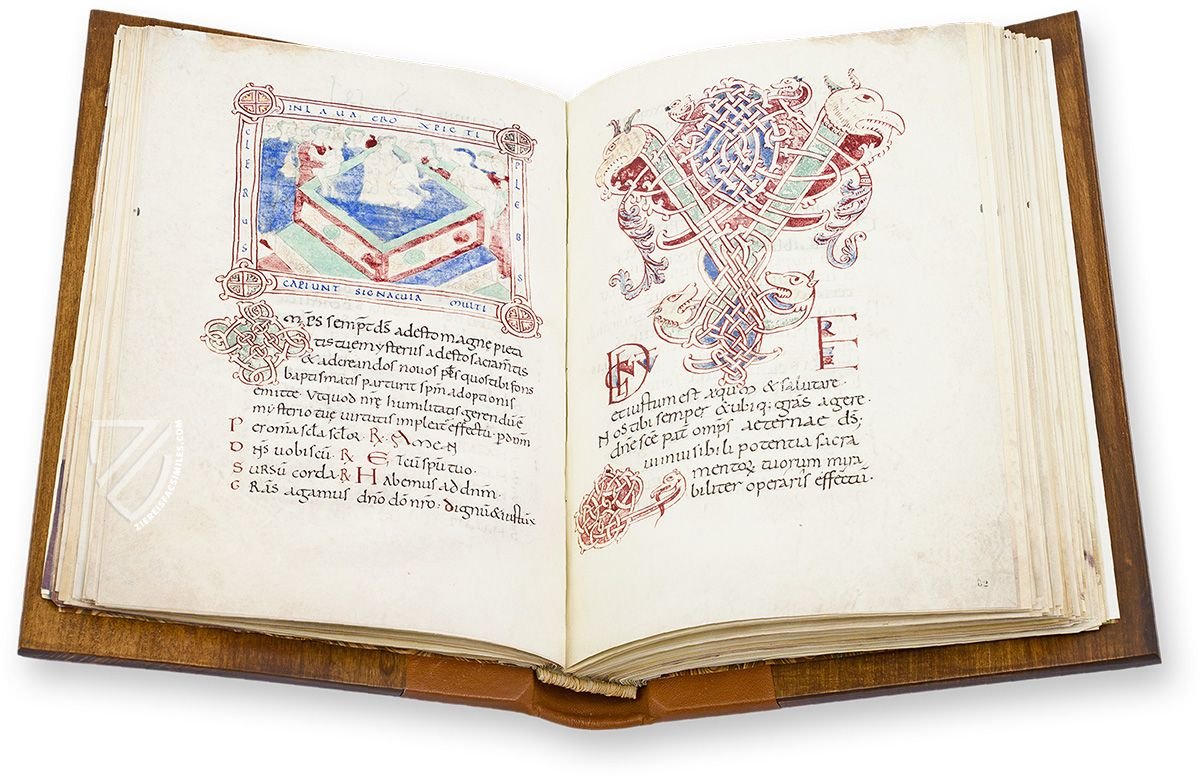 IN LAUACRO XPICTI
CLERUS
PLEBS
CAPIUNT SIGNACULA MULTI
MPS sempt ds adesto magne pieta
tis tue mysteriis adesto sacramtis
& adcreandos nouos pples quos tibi fons
baptismatis parturit spm adoptionis
emitte. Utquod nre humilitatis gerendu e
mysterio tue uirtutis impleat effectu. p dnm
Per omia scla sclor. R. Amen
Dns uobiscu. R. E, tcu spu tuo.
Sursu corda. R Habemus ad dnm.
Gras agamus dno do nro. Dignu & iustu
RE
et iustum est aequm & salutare.
Nos tibi semper & ubiq. gras agere.
dne sce pat omps aeternae ds;
ui inuisibili potentia sacra
mentoq tuorum mira
biliter operaris effectu.
82
ZIEREISFACSIMILES.COM